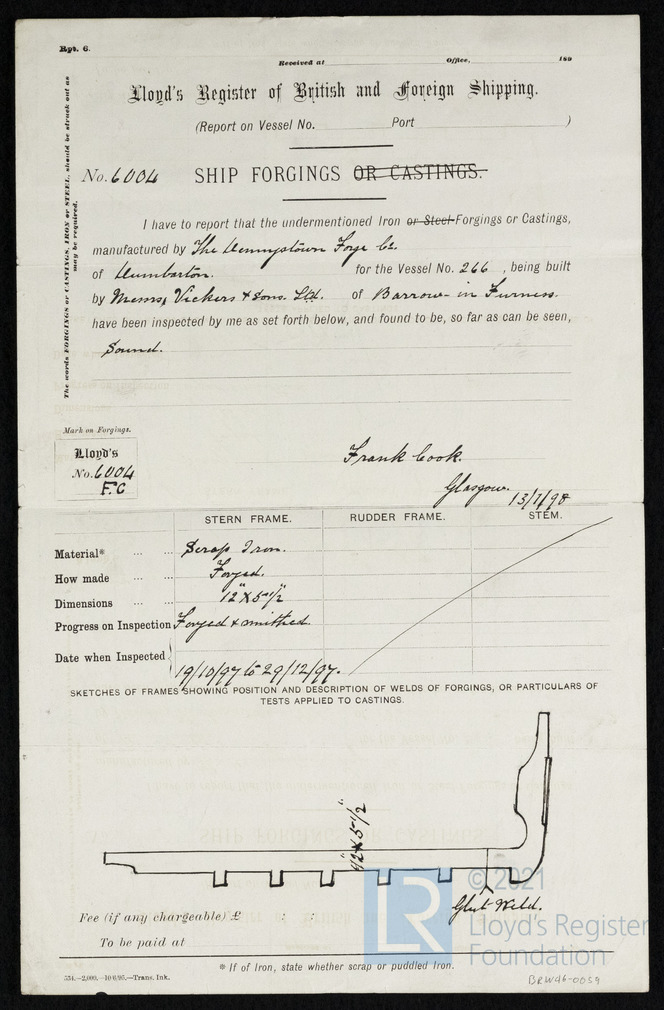 Rpt. 6.
Received at Office, 189
Lloyd's Register of British and Foreign Shipping.
(Report on Vessel No. Port )
No. 6004 SHIP FORGINGS OR CASTINGS.
The words FORGINGS or CASTINGS, IRON or STEEL, should be struck out as may be required.
I have to report that the undermentioned Iron or Steel Forgings or Castings,
manufactured by The Dennystown Forge Co.
of Dumbarton. for the Vessel No. 266 , being built
by Messrs Vickers & Sons. Ltd. of Barrow-in Furness.
have been inspected by me as set forth below, and found to be, so far as can be seen,
Sound.
Mark on Forgings.
Lloyd's
No. 6004
F.C
Frank Cook.
Glasgow. 13/1/98
STERN FRAME. RUDDER FRAME. STEM.
Material* ... ... Scrap Iron.
How made ... ... Forged.
Dimensions ... ... 12" X 5 1/2"
Progress on Inspection Forged & smithed.
Date when Inspected 19/10/97 to 29/12/97.
SKETCHES OF FRAMES SHOWING POSITION AND DESCRIPTION OF WELDS OF FORGINGS, OR PARTICULARS OF
TESTS APPLIED TO CASTINGS.
12" X 5 1/2"
Glut Weld.
Fee (if any chargeable) £ : :
To be paid at
* If of Iron, state whether scrap or puddled Iron.
534.—2,000.—10/6/95.—Trans. Ink.
BRW46-0059
LR
© 2021
Lloyd's Register
Foundation